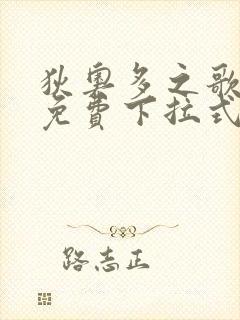 狄奧多之歌
免費下拉式
路志正